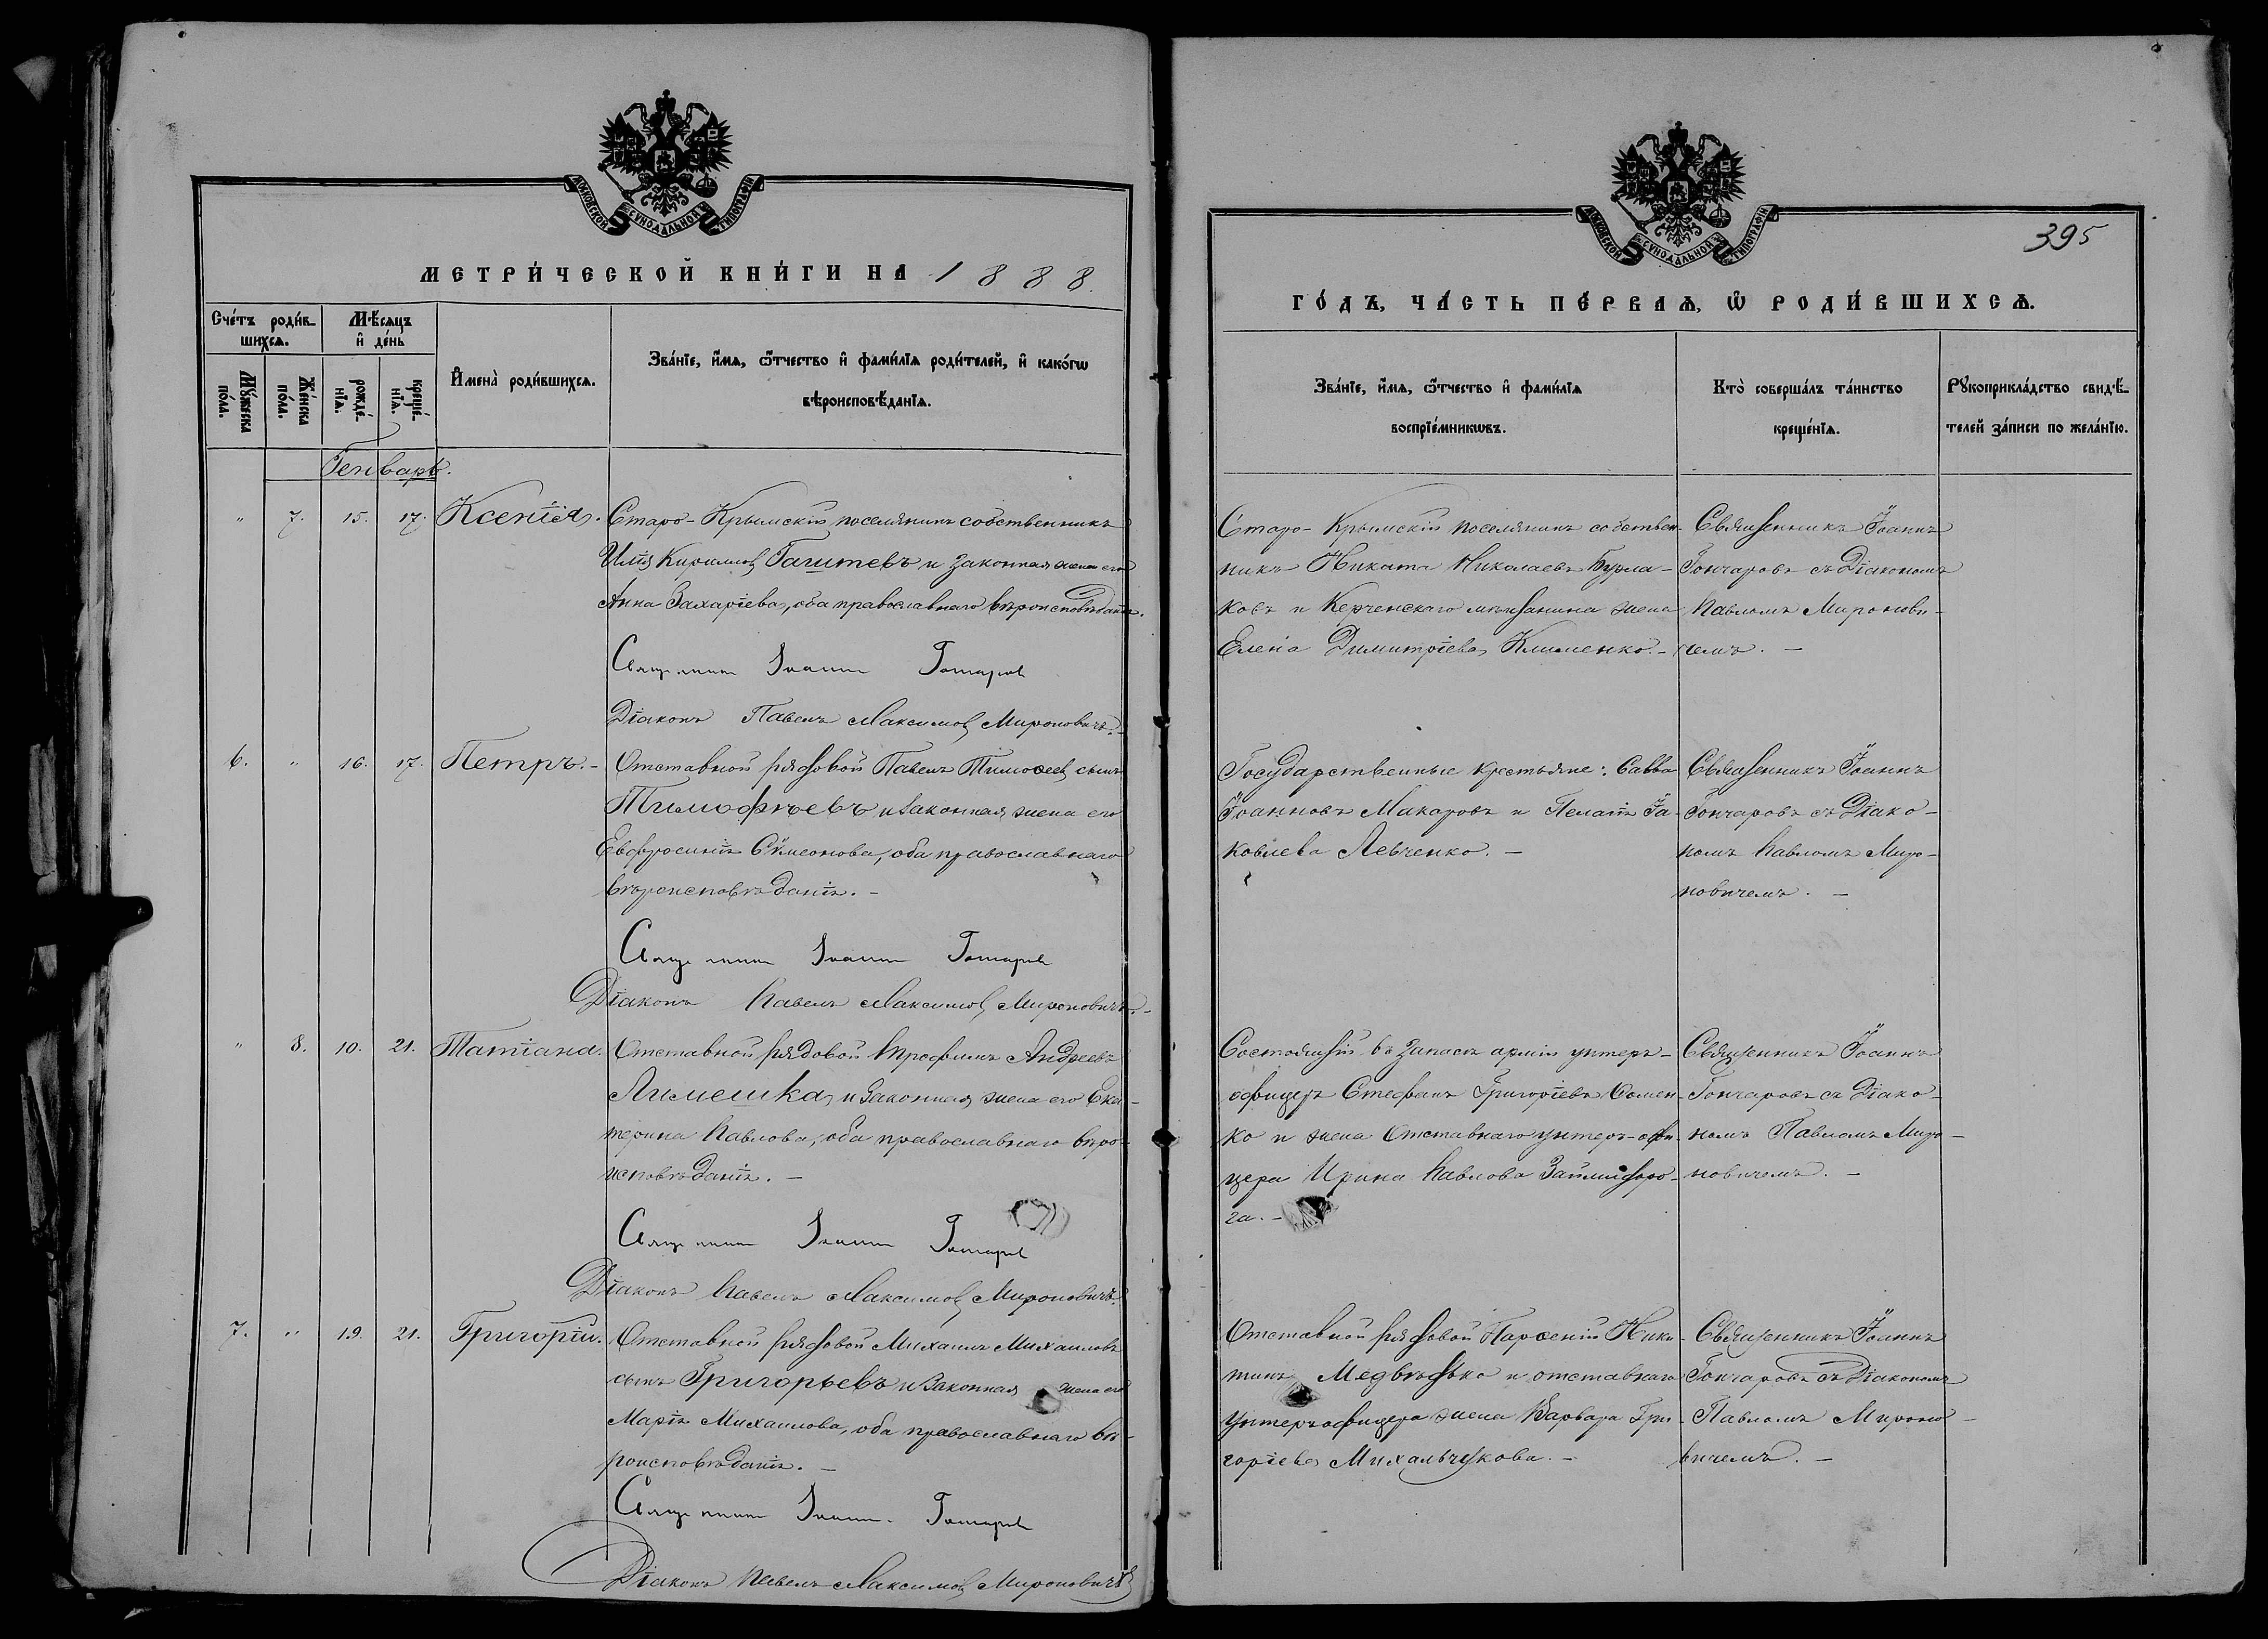 МОСКОВСКОЙ СѴНОДАЛЬНОЙ ТИПОГРАФІИ
МЕТРИ́ЧЕСКОЙ КНИ́ГИ НА 1888.
Сче́тъ роди́в-
шихсѧ.
Мѣ́сѧцъ
и҆ де́нь
Мꙋ́жеска
по́ла.
Же́нска
по́ла.
рожде́-
нїѧ.
креще́-
нїѧ.
И҆мена̀ роди́вшихсѧ.
Зва́нїе, и҆́мѧ, ѻ҆́тчество и҆ фами́лїѧ роди́телей, и҆ како́гѡ
вѣроисповѣ́данїѧ.
Генварь.
" 7. 15. 17. Ксенія. Старо-Крымскій поселянинъ собственникъ
Илія Кириллов Гагитевъ и законная жена его
Анна Захаріева, оба православнаго вѣроисповѣданія.
Священник Іоанн Гончаров
Діаконъ Павелъ Максимов Мироновичъ.
6. " 16. 17. Петръ. - Отставной рядовой Павелъ Тимоѳеев сынъ
Тимофѣевъ и законная жена его
Евфросинія Сѵмеонова, оба православнаго
вѣроисповѣданія. -
Священник Іоанн Гончаров
Діаконъ Павелъ Максимов Мироновичъ. -
" 8. 10. 21. Татіана. Отставной рядовой Трофимъ Андреевъ
Лимешка и законная жена его Ека-
терина Павлова, оба православнаго вѣро-
исповѣданія. -
Священник Іоанн Гончаров
Діаконъ Павелъ Максимов Мироновичъ.
7. " 19. 21. Григорій. Отставной рядовой Михаилъ Михаиловъ
сынъ Григорьевъ и законная жена его
Марія Михаилова, оба православнаго вѣ-
роисповѣданія. -
Священник Іоанн. Гончаров
Діаконъ Павелъ Максимов Мироновичъ
МОСКОВСКОЙ СѴНОДАЛЬНОЙ ТИПОГРАФІИ
395
ГО́ДЪ, ЧА́СТЬ ПЕ́РВАѦ, Ѡ҆ РОДИ́ВШИХСѦ.
Зва́нїе, и҆́мѧ, ѻ҆́тчество и҆ фами́лїѧ
воспрїе́мникѡвъ.
Кто̀ соверша́лъ та́инство
креще́нїѧ.
Рꙋкоприкла́дство свидѣ́-
телей за́писи по жела́нїю.
Старо-Крымскій поселянинъ собствен-
никъ Никита Николаевъ Бурла-
ковъ и Керченскаго мѣщанина жена
Елена Димитріева Клименко. -
Священникъ Іоаннъ
Гончаровъ съ Діакономъ
Павломъ Миронови-
чемъ. -
Государственные крестьяне: Савва
Іоанновъ Макаровъ и Пелагія Іа-
ковлева Левченко. -
Священникъ Іоаннъ
Гончаровъ съ Діако-
номъ Павломъ Миро-
новичемъ. -
Состоящій въ запасѣ арміи унтеръ-
офицеръ Стефанъ Григоріевъ Сомен-
ко и жена отставнаго унтеръ-офи-
цера Ирина Павлова
га. -
Священникъ Іоаннъ
Гончаровъ съ Діако-
номъ Павломъ Миро-
новичемъ. -
Отставной рядовой Парѳеній Ники-
тинъ Медвѣдько и отставнаго
унтеръ офицера жена Варвара Гри-
горіева Михальчукова. -
Священникъ Іоаннъ
Гончаровъ съ Діакономъ
Павломъ Мироно-
вичемъ. -